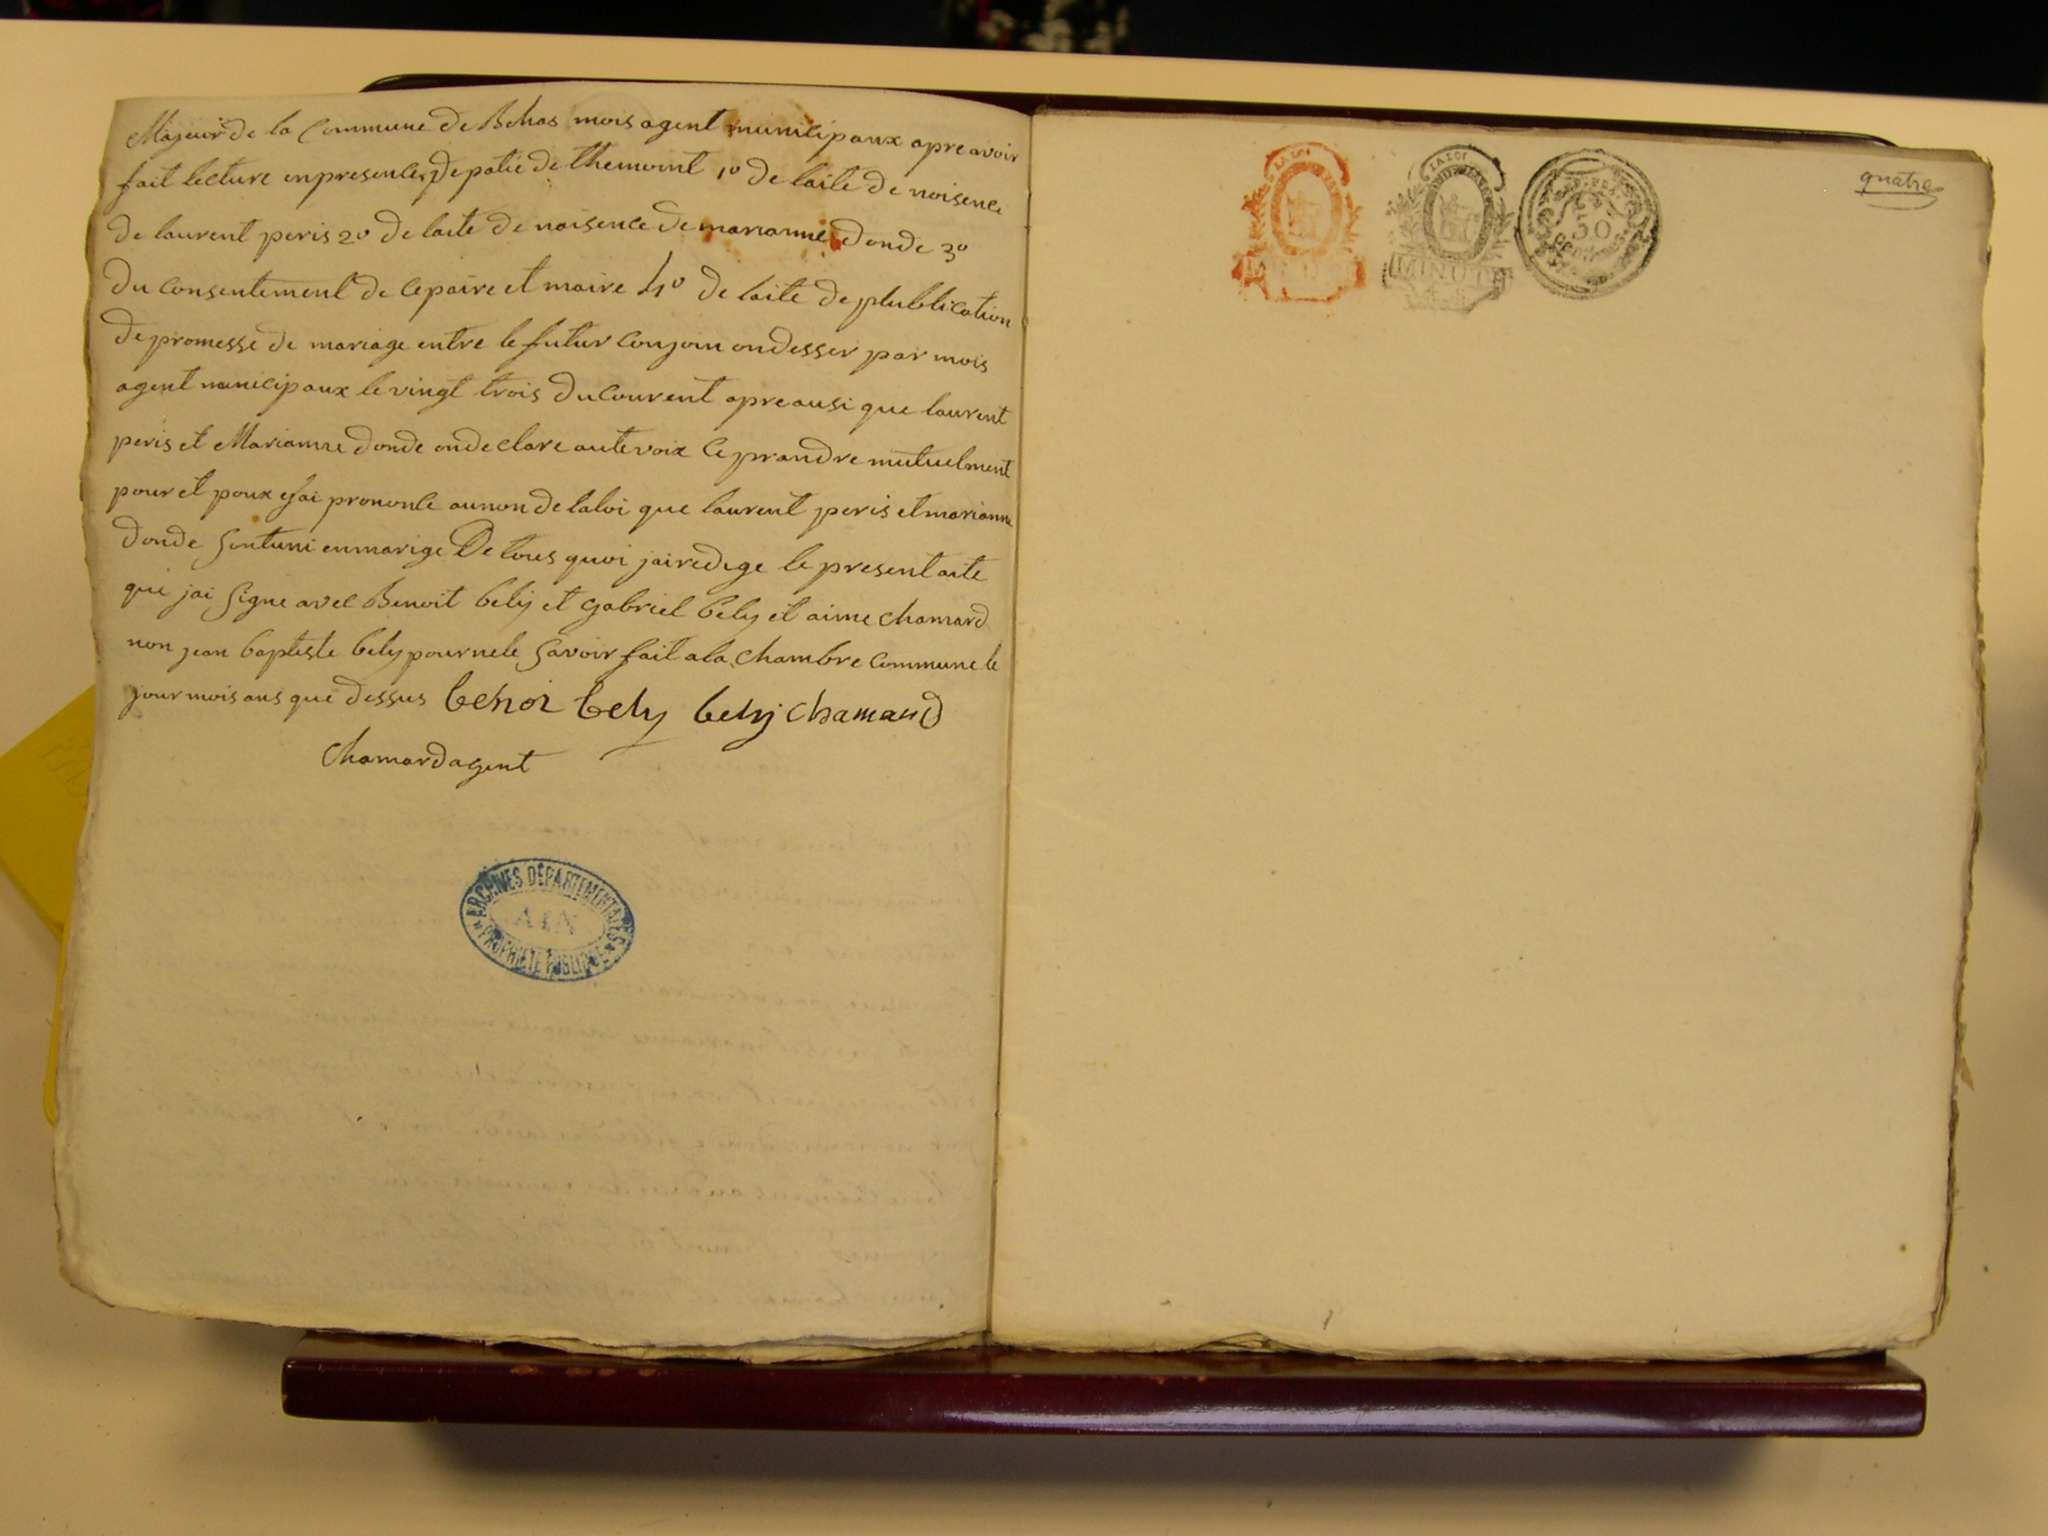 Majeur de la Commune de Behas mois agent municipaux apre avoir
fait lecture en presences de patie de themoint 1º de laite de noisence
de laurent peris 2º de laite de noisence de marianne donde 3º
du consentement de ce paire et maire 4º de laite de plublication
de promesse de mariage entre le futur conjoin ondesser par mois
agent municipaux le vingt trois du courent apre ausi que laurent
peris et Marianne donde onde clare aute voix ce prandre mutuelment
pour et poux ejai prononce au non de la loi que laurent peris et marianne
donde sont uni en marige De tous quoi jai redige le present aite
que jai signe avec Benoit bely et gabriel bely et aime chamard
non jean baptiste bely pour nele savoir fait a la chambre commune le
jour mois ans que dessus benoi bely bely chamard
chamard agent
ARCHIVES DÉPARTEMENTALES
AIN
PROPRIÉTÉ PUBLIQUE
LA LOI
MINUTE
LA LOI
MINUTE
50
quatre